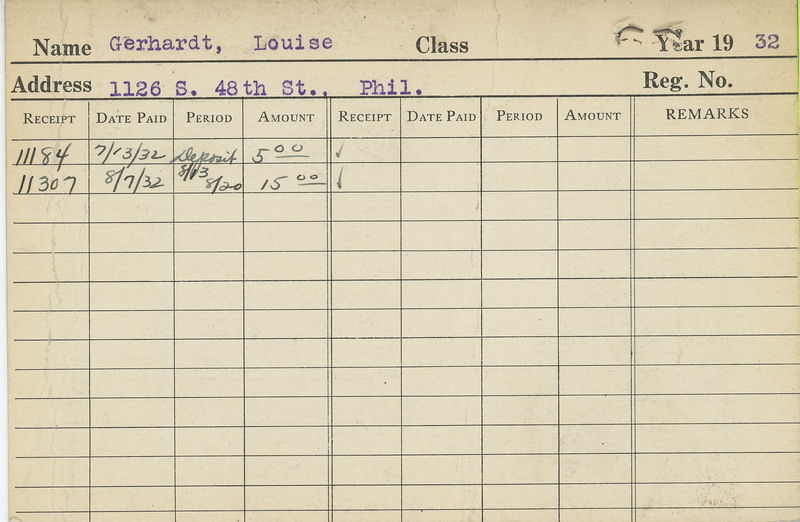 Name Gerhardt, Louise Class Year 19 32
Address 1126 S. 48th St., Phil. Reg. No.
RECEIPT DATE PAID PERIOD AMOUNT RECEIPT DATE PAID PERIOD AMOUNT REMARKS
11184 7/13/32 Deposit 5 00 ✓
11307 8/7/32 8/13 8/20 15 00 ✓